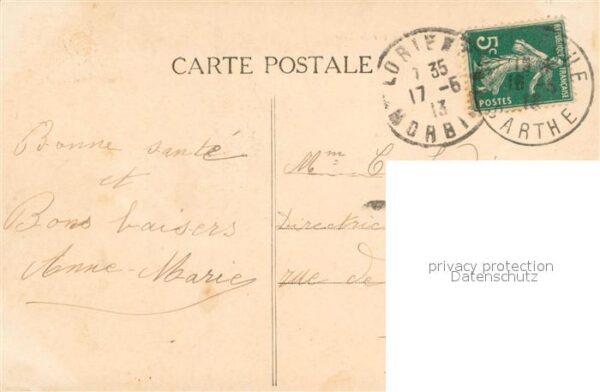 CARTE POSTALE
LORIENT
7 35
17 -6
13
MORBIHAN
SARTHE
5c
POSTES
REPUBLIQUE FRANÇAISE
Bonne santé
et
Bons baisers
Anne-Marie
Mme
Directrice
rue de
privacy protection
Datenschutz